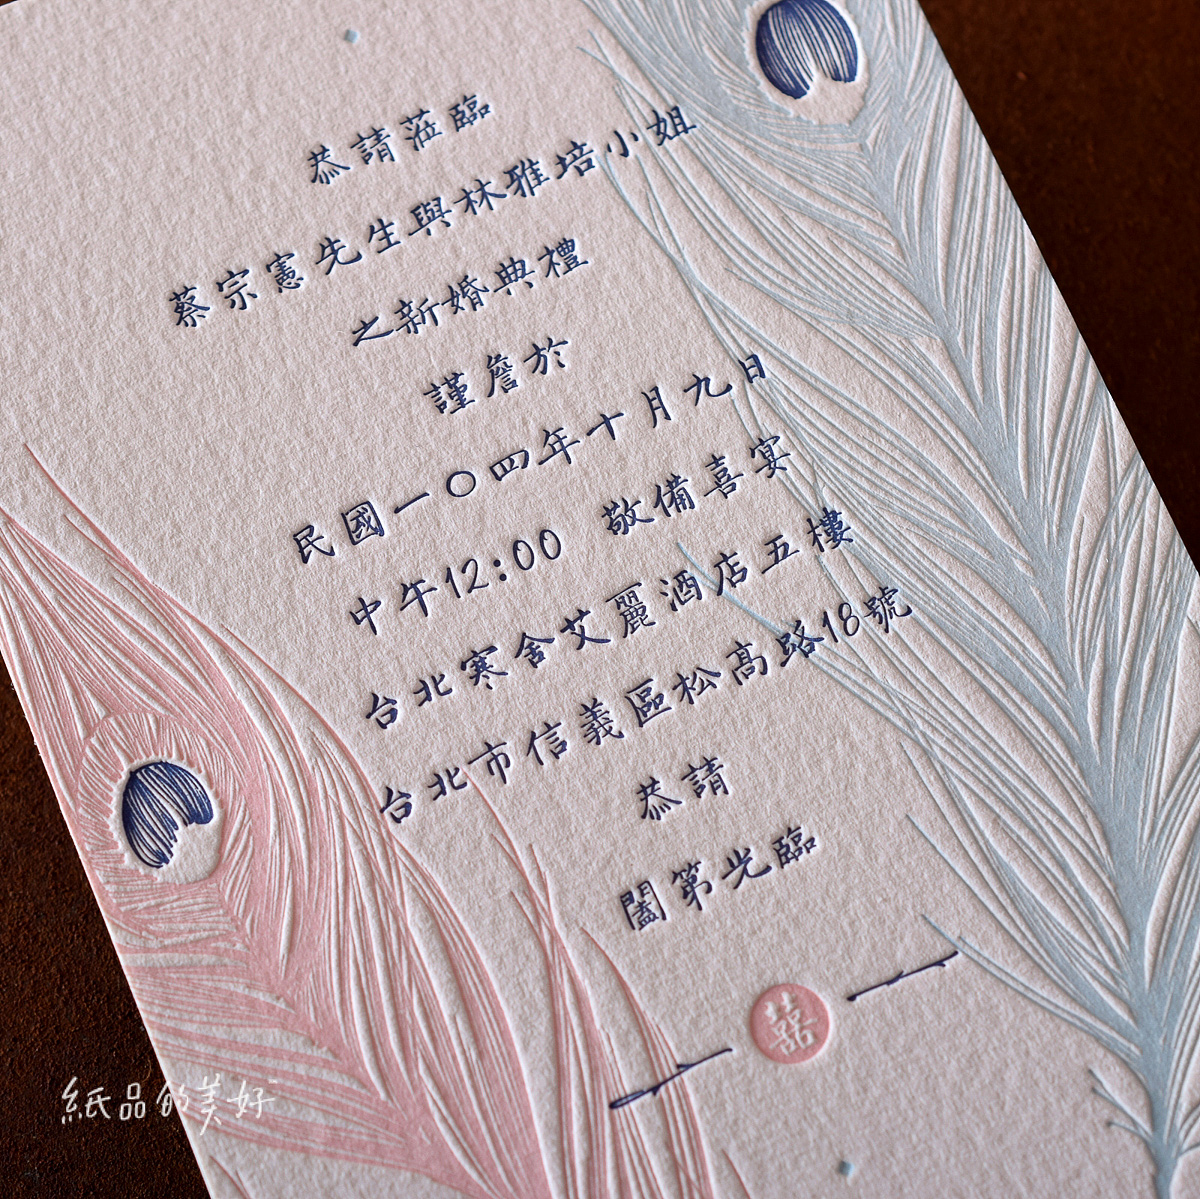 恭請蒞臨
蔡宗憲先生與林雅培小姐
之新婚典禮
謹詹於
民國一〇四年十月九日
中午12:00 敬備喜宴
台北寒舍艾麗酒店五樓
台北市信義區松高路18號
恭請
闔第光臨
囍
紙品的美好